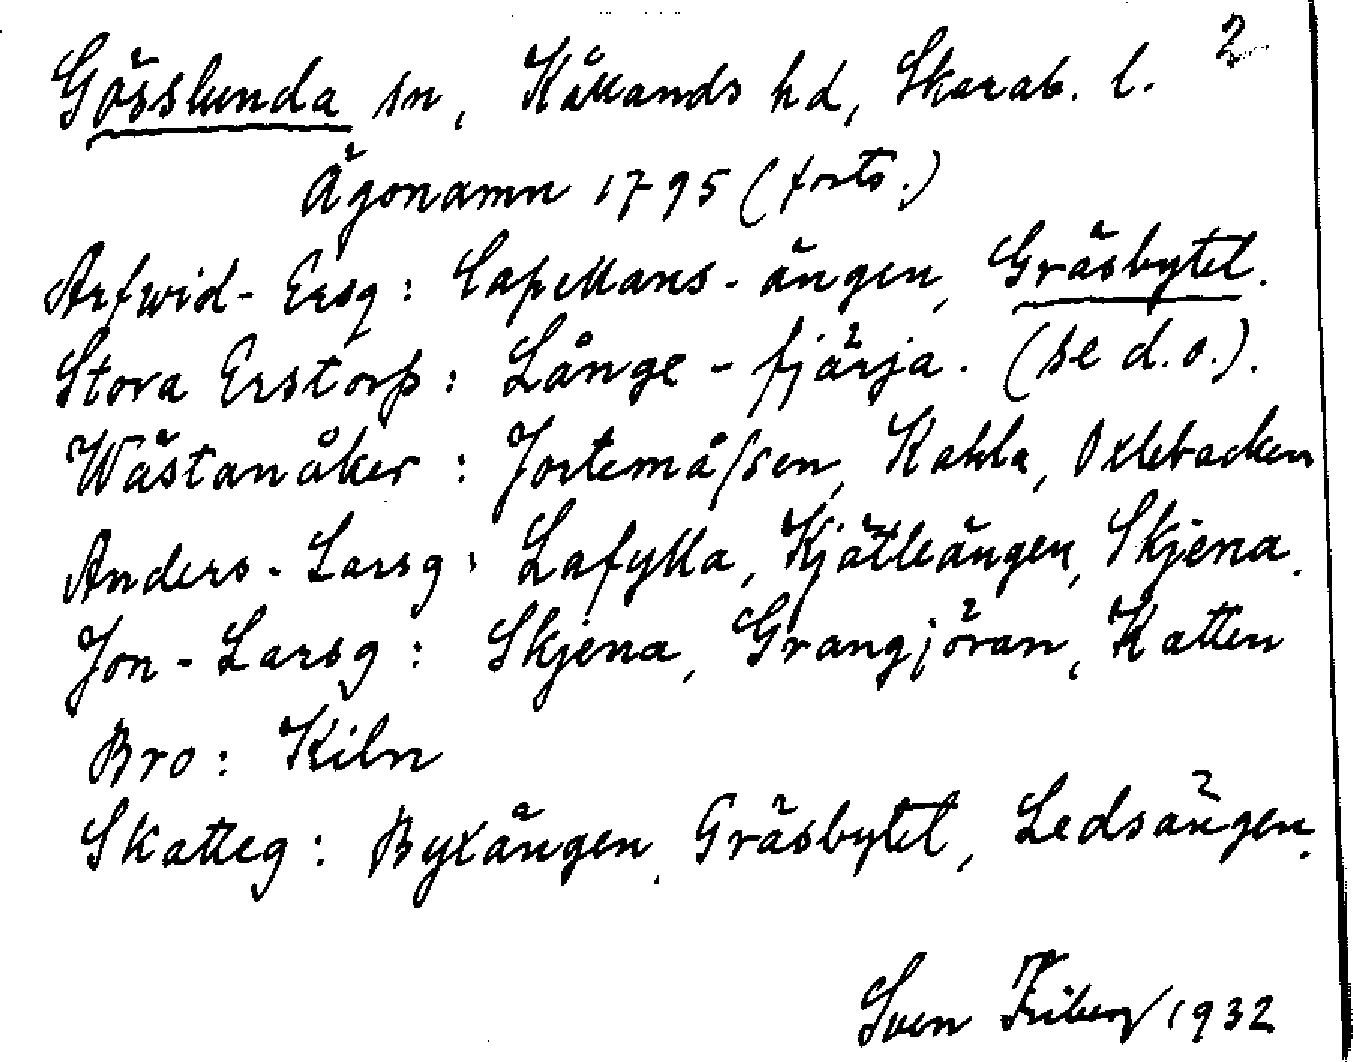 Gösslunda sn, Kållands hd, Skarab. l. 2
Ägonamn 1795 (forts.)
Arfwid-Ersg: Capellans-ängen, Gräsbytet.
Stora Erstorp: Långe-fjärja. (se d.o.).
Wästanåker: Jortemåssen, Kakla, Oxlebacken
Anders-Larsg: Lafylla, Kjätleängen, Skjena.
Jon-Larsg: Skjena, Grangjöran, Katten
Bro: Kiln
Skatteg: Byxängen, Gräsbytet, Ledsängen.
Sven Friberg 1932